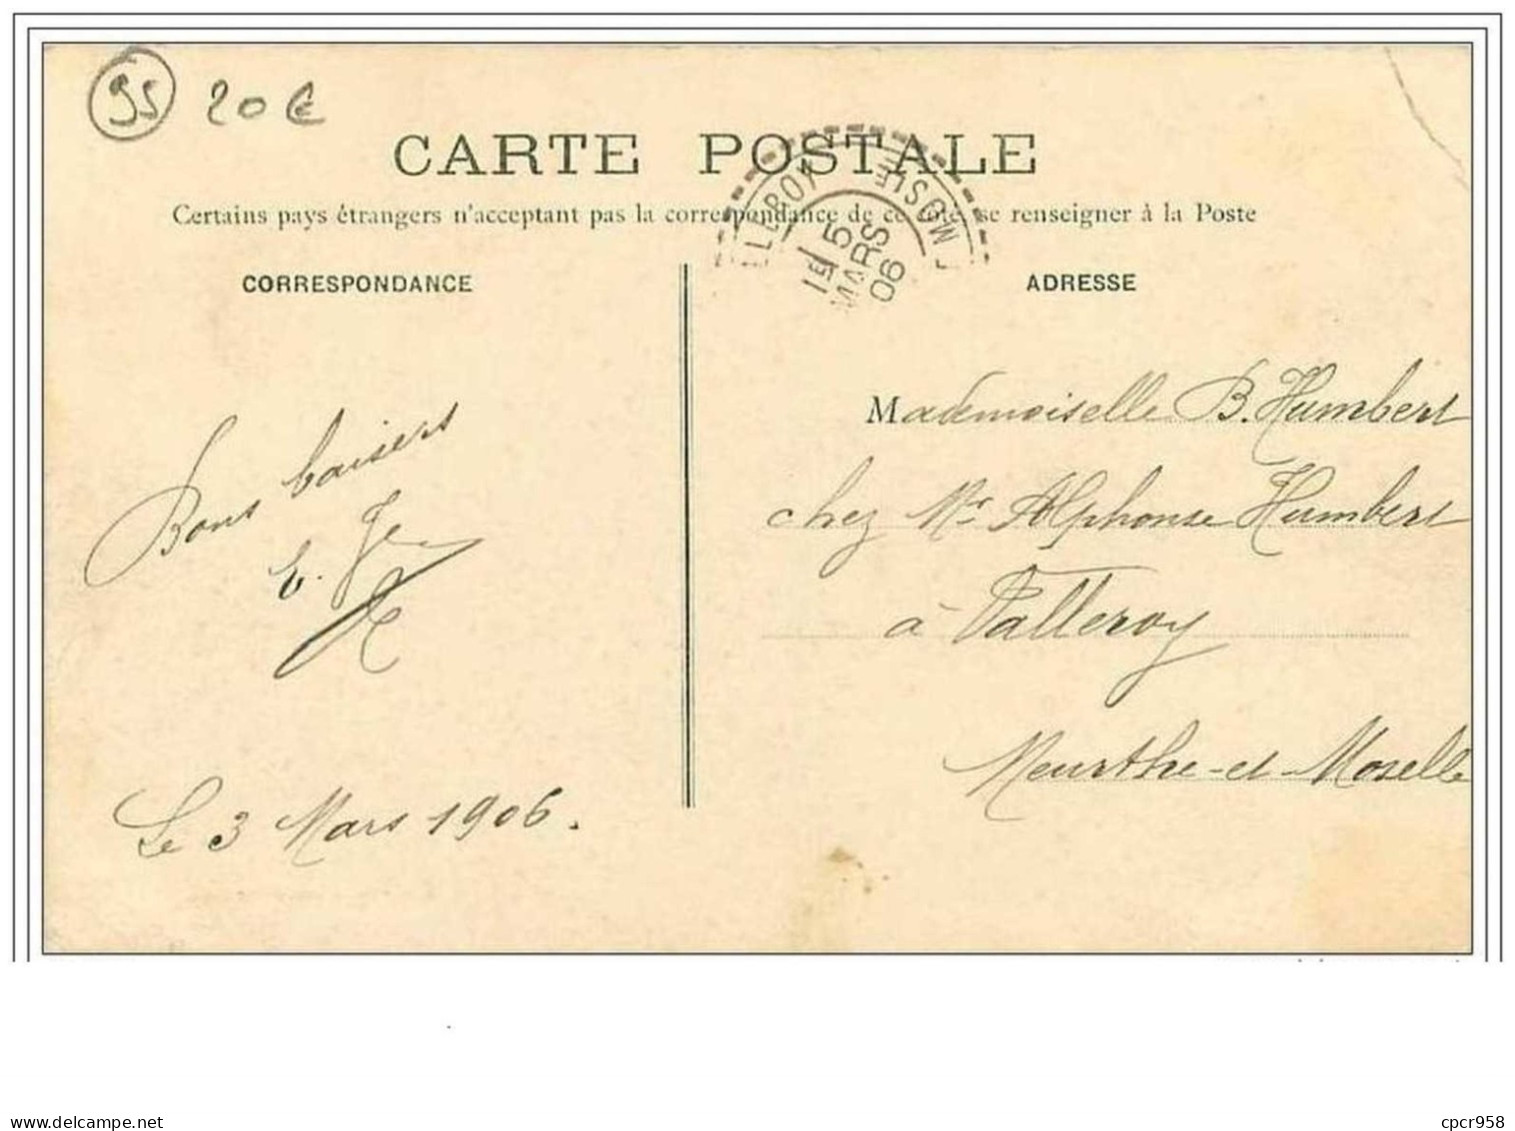 95 20 €
CARTE POSTALE
Certains pays étrangers n'acceptant pas la correspondance de ce côté, se renseigner à la Poste
LLEROY MOSLLE
1E 5
MARS
06
CORRESPONDANCE
Bons baisers
Le 3 Mars 1906.
ADRESSE
Mademoiselle B. Humbert
chez Mr Alphonse Humbert
à Valleroy
Meurthe-et-Moselle
https://www.delcampe.net
cpcr958